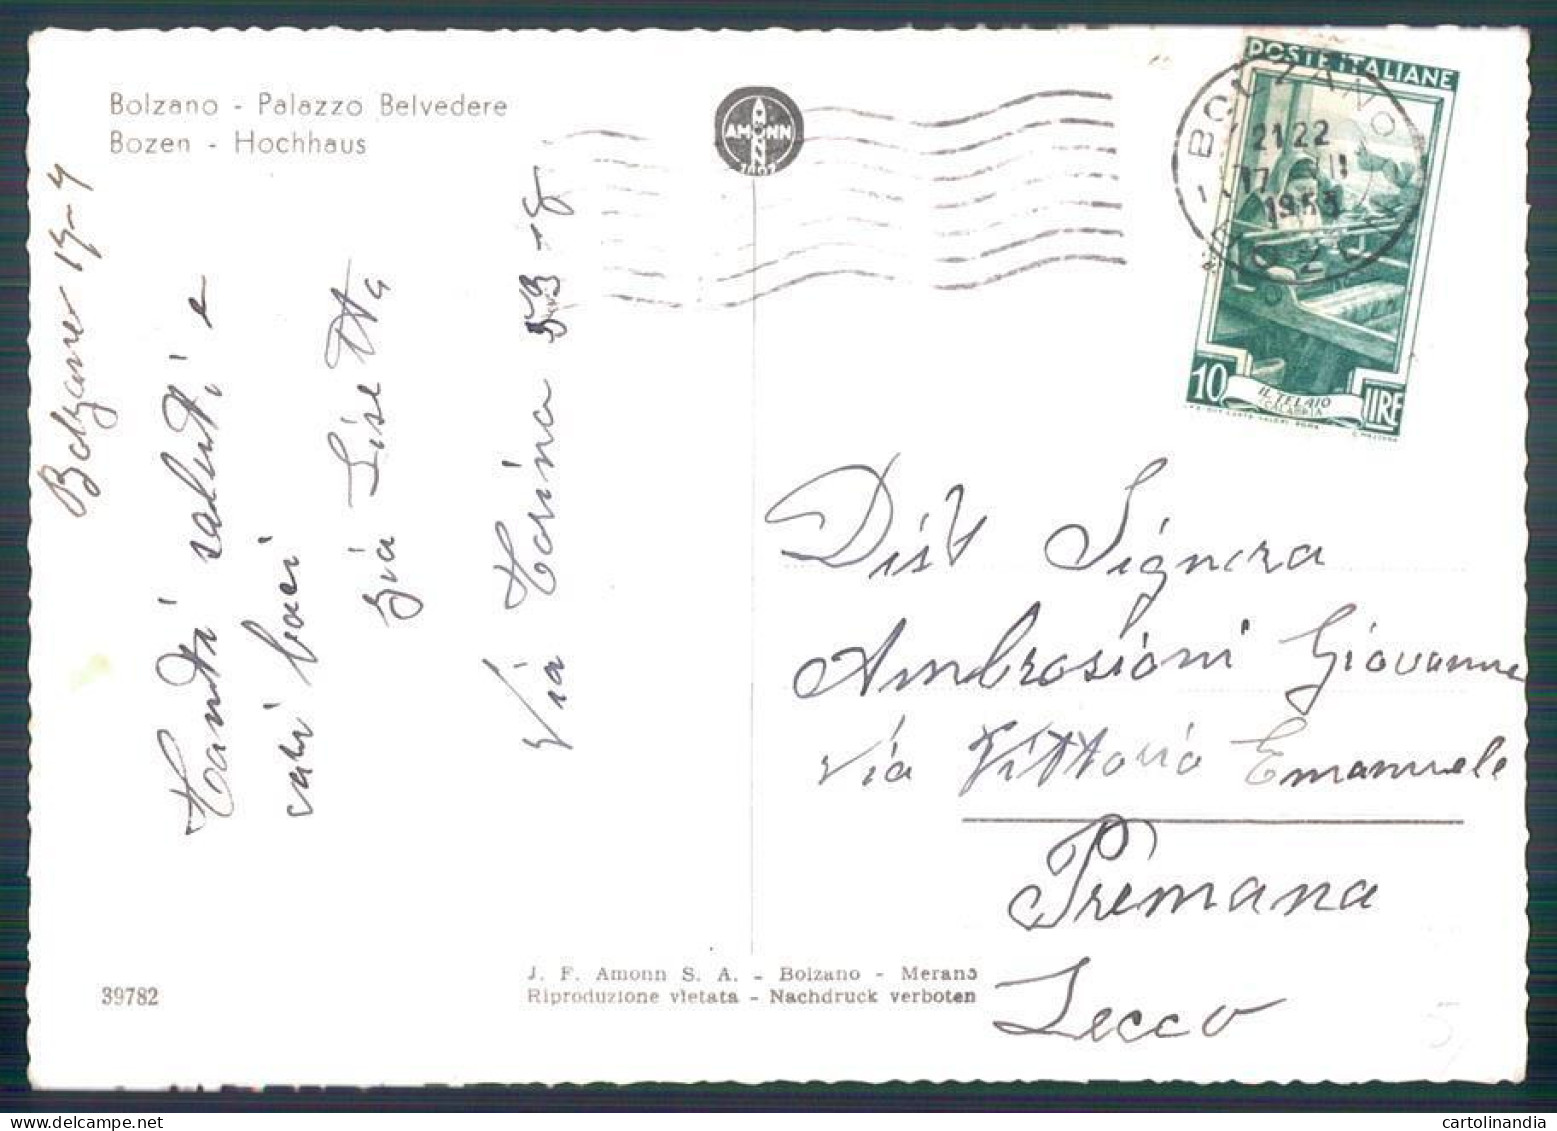 Bolzano - Palazzo Belvedere
Bozen - Hochhaus
AMONN
POSTE ITALIANE
BOLZANO
21.22
1953
10 LIRE
IL TELAIO
CALABRIA
Bolzano 17-4
Tanti saluti e
cari baci
zia Lisetta
Via Torino
Dist Signora
Ambrosioni Giovanna
via Vittorio Emanuele
Premana
Lecco
J. F. Amonn S. A. - Bolzano - Merano
Riproduzione vietata - Nachdruck verboten
39782
cartolinandia